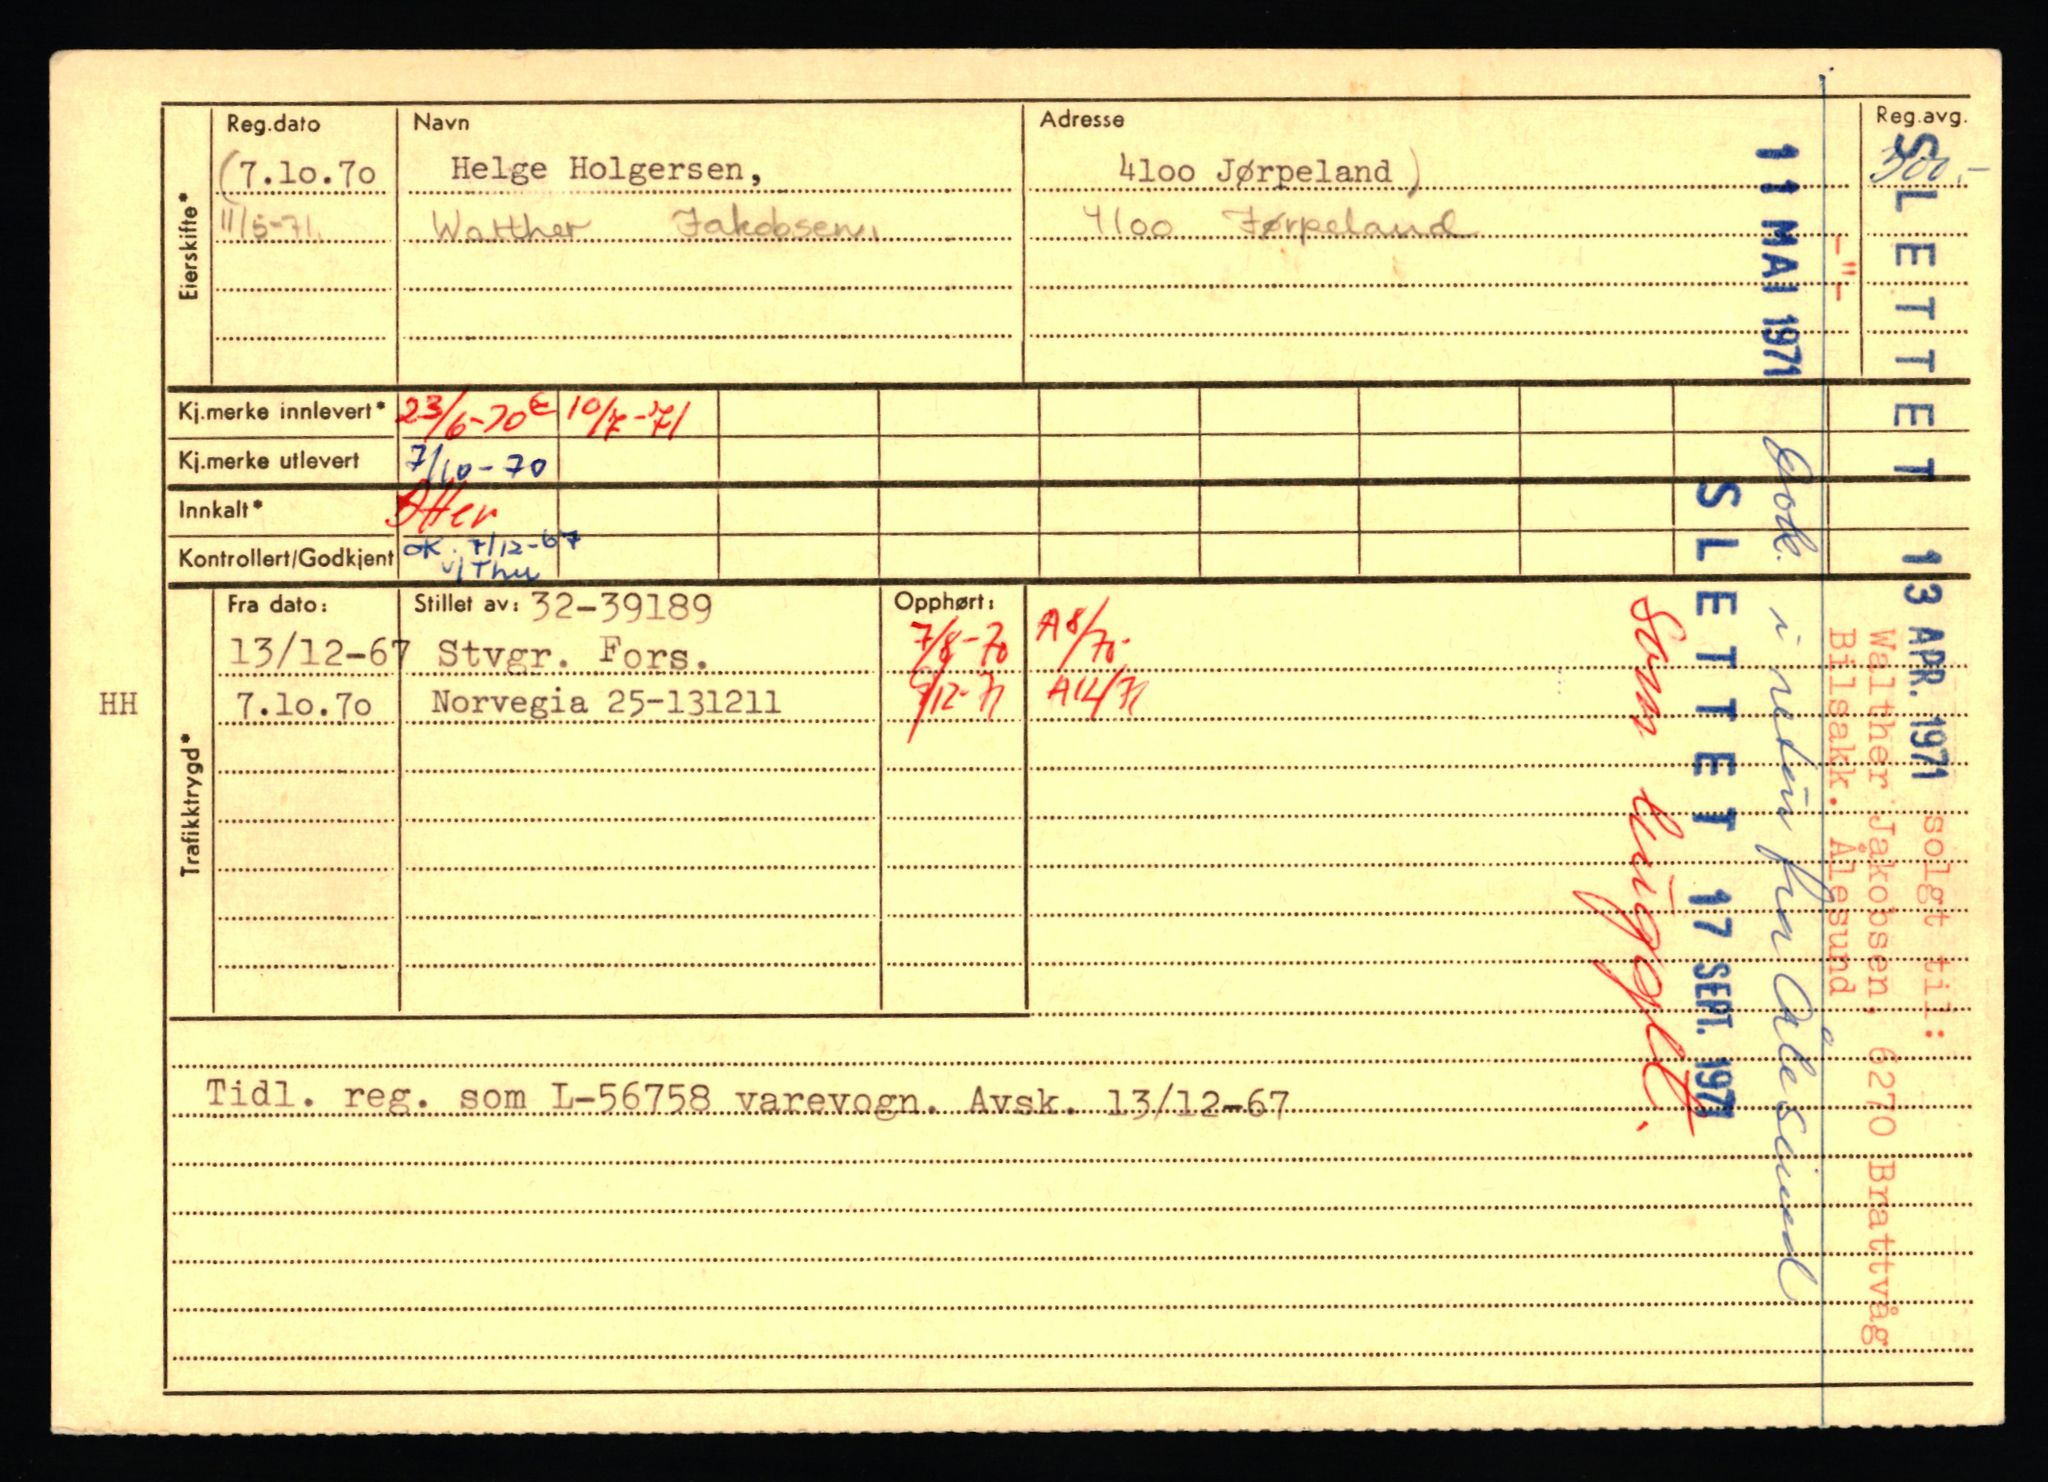 Reg.dato Navn Adresse Reg.avg.
(7.10.70 Helge Holgersen, 4100 Jørpeland) 300,-
11/5-71. Walther Jakobsen, 4100 Jørpeland
Eierskifte*
Kj.merke innlevert* 23/6-70 10/7-71
Kj.merke utlevert 7/10-70
Innkalt* Etter
Kontrollert/Godkjent OK. 7/12-67
v/Thu
Fra dato: Stillet av: 32-39189 Opphørt:
13/12-67 Stvgr. Fors. 7/8-70 A8/70.
HH 7.10.70 Norvegia 25-131211 9/12-71 A12/71
Trafikktrygd*
Tidl. reg. som L-56758 varevogn. Avsk. 13/12-67
SLETTET 13 APR. 1971
solgt til:
Walther Jakobsen, 6270 Brattvåg
-"- Bilsakk. Ålesund
11 MAI 1971 Godk. i retur fra Ålesund
SLETTET 17 SEPT. 1971